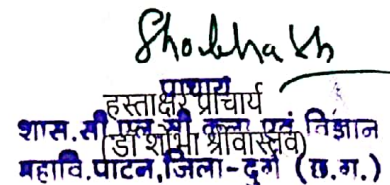 Shobha
प्राचार्य
हस्ताक्षर प्राचार्य
शास. सी.एल.सी. कला एवं विज्ञान
(डॉ शोभा श्रीवास्तव)
महावि.पाटन,जिला-दुर्ग (छ.ग.)